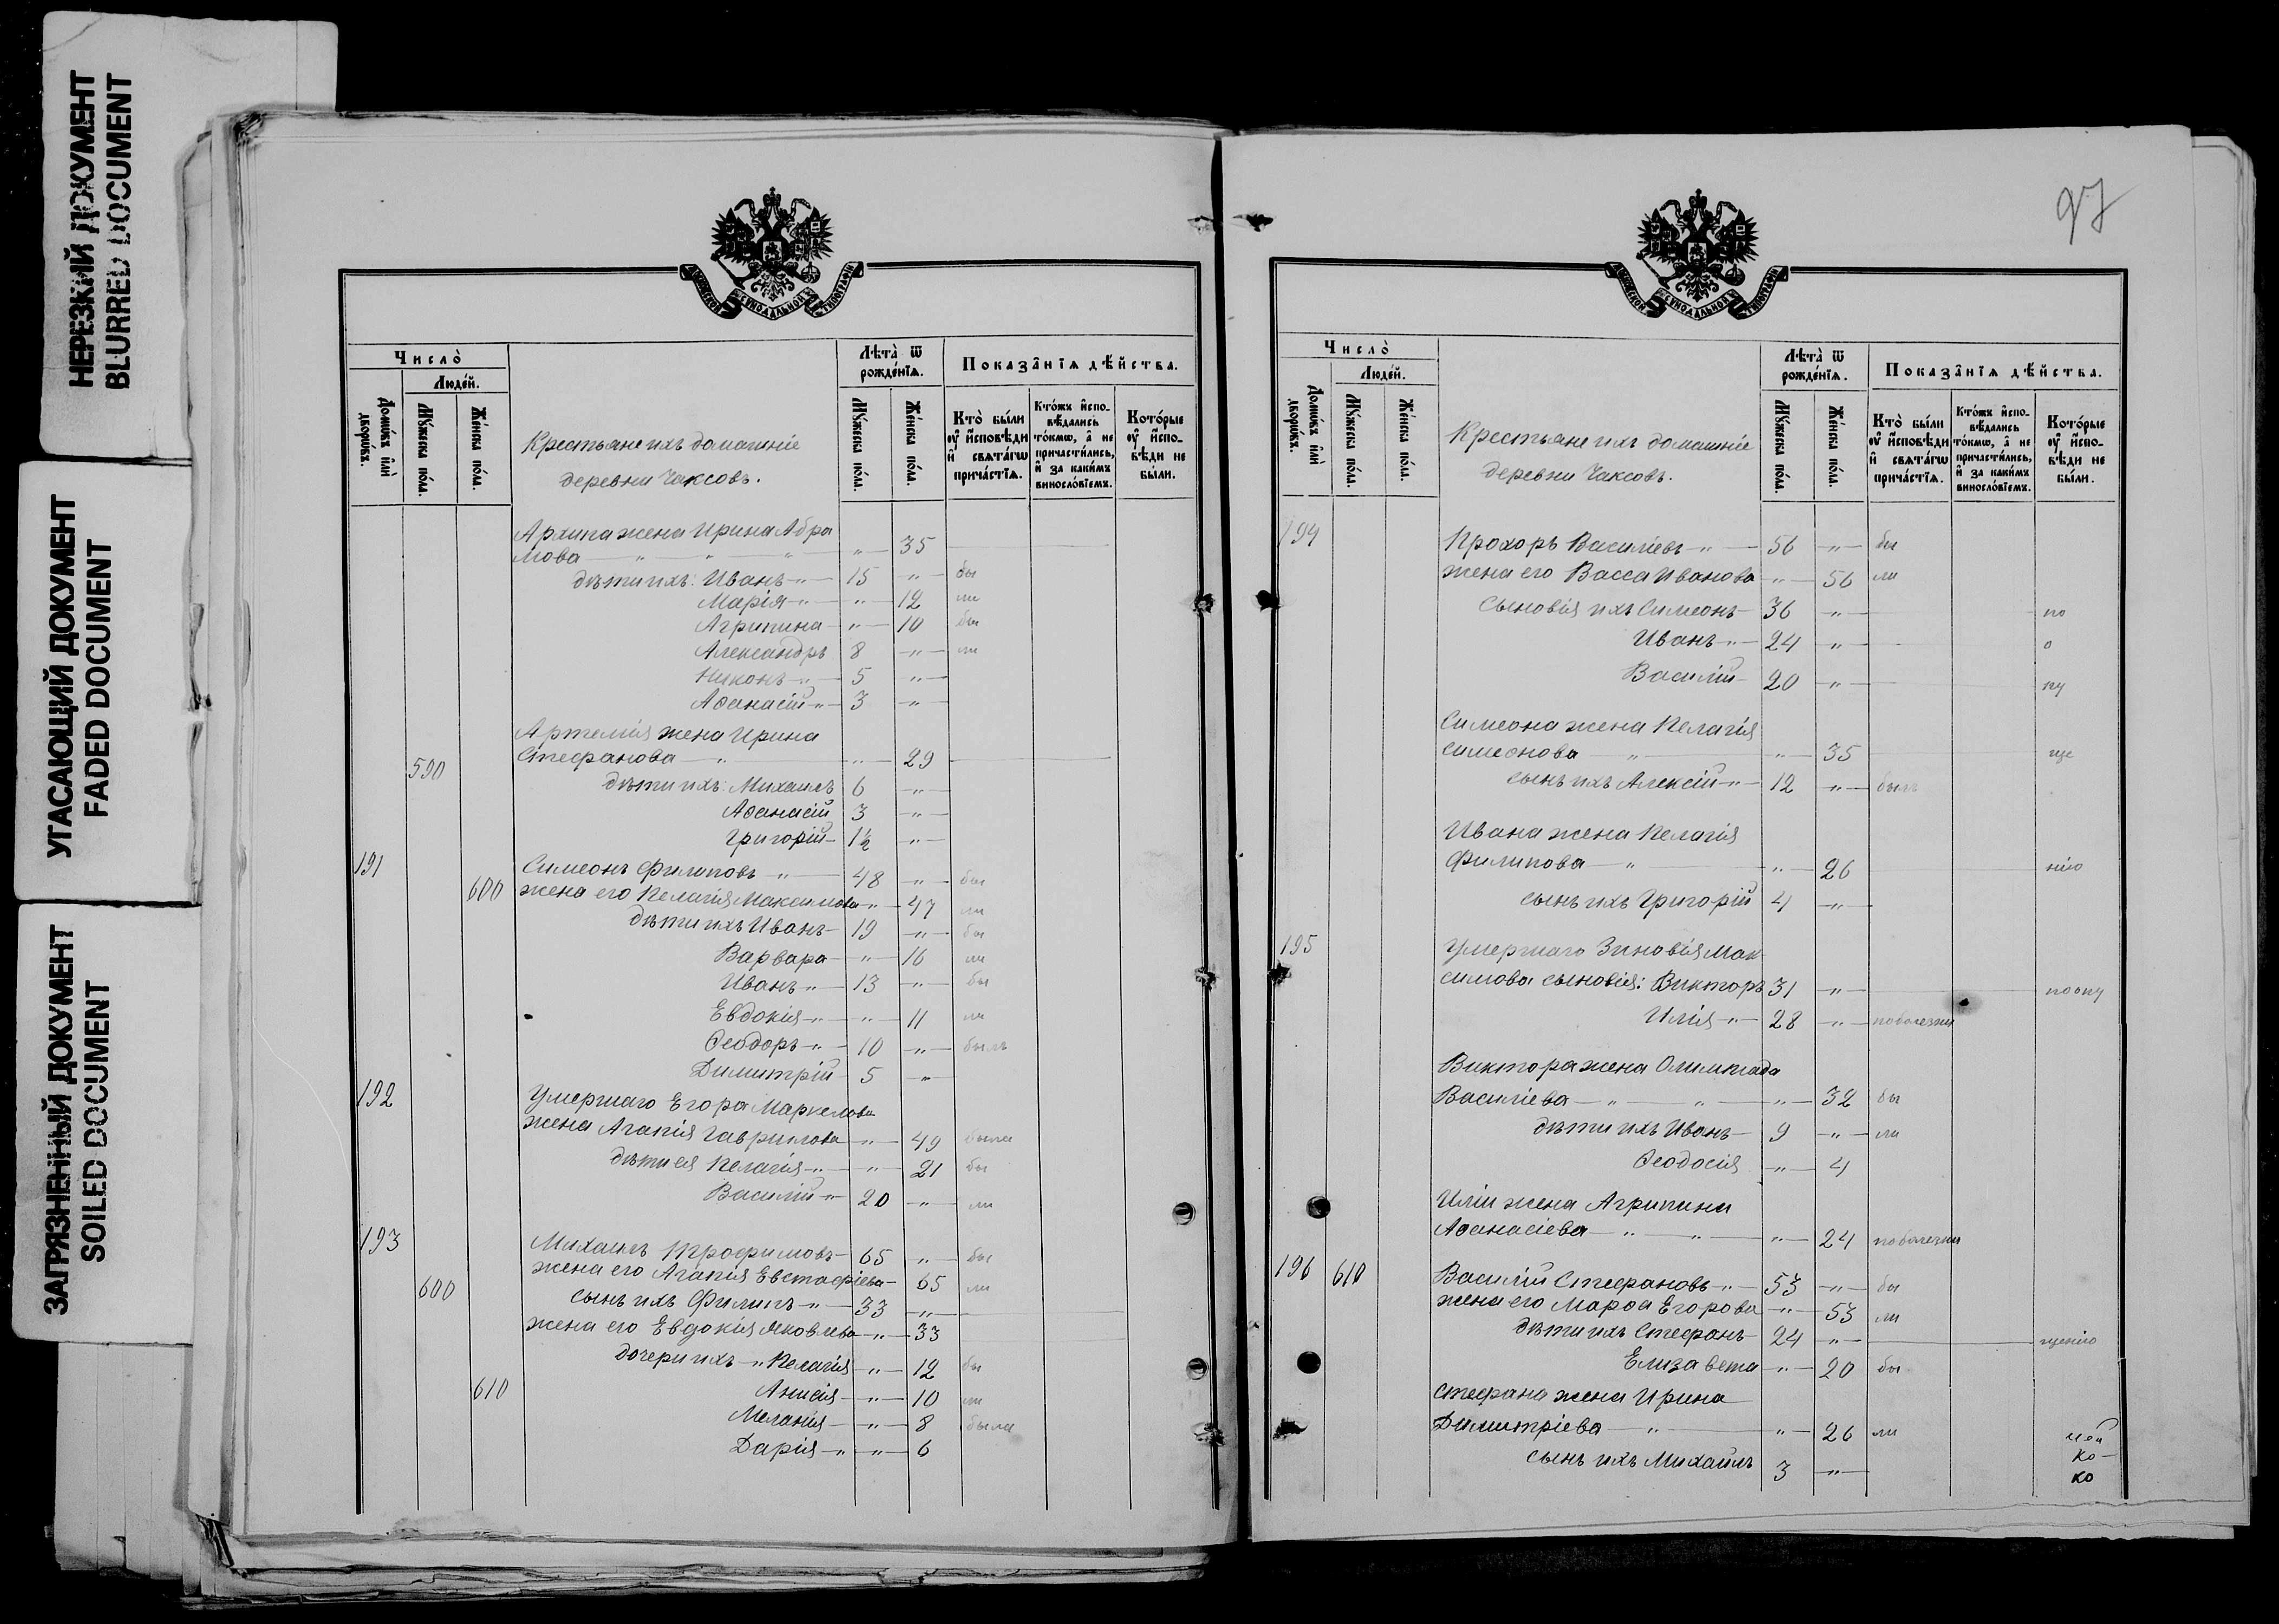 НЕРЕЗКИЙ ДОКУМЕНТ
BLURRED DOCUMENT
УГАСАЮЩИЙ ДОКУМЕНТ
FADED DOCUMENT
ЗАГРЯЗНЕННЫЙ ДОКУМЕНТ
SOILED DOCUMENT
МОСКОВСКОЙ СѴНОДАЛЬНОЙ ТИПОГРАФІИ
Число̀
Людéй.
Домѡ́въ и҆лѝ дворѡ́въ.
Мꙋ́жеска по́ла.
Же́нска по́ла.
Крестьяне ихъ домашніе
деревни Чаксовъ.
Лѣ́та ѿ рожде́нїѧ.
Мꙋ́жеска по́ла.
Же́нска по́ла.
Показа̑нїѧ дѣ́йства.
Кто̀ бы́ли ᲂу҆ и҆сповѣ́ди и҆ свѧта́гѡ прича́стїѧ.
Кто́жъ и҆спо-вѣ́дались то́кмѡ, а҆ не причасти́лись, и҆ за каки́мъ винослові́емъ.
Кото́рые ᲂу҆ и҆спо-вѣ́ди не бы́ли.
Архипа жена Ирина Абра
мова " " " " 35
дѣти ихъ: Иванъ " 15 " бы
Марія " " 12 ли
Агрипина " 10 бы
Александръ 8 " ли
Никонъ " 5 "
Аѳанасій " 3 "
Артемія жена Ирина
590 Стефанова " " 29
дѣти ихъ: Михаилъ 6 "
Аѳанасій 3 "
Григорій 1½ "
191 Симеонъ Филиповъ " 48 " бы
600 жена его Пелагія Максимова " 47 ли
дѣти ихъ Иванъ 19 " бы
Варвара " 16 ли
Иванъ " 13 " бы
Евдокія " " 11 ли
Ѳеодоръ " 10 " былъ
Димитрій 5 "
192 Умершаго Егора Маркелова
жена Агапія Гаврилова " 49 была
дѣти ея Пелагія " " 21 бы
Василій " 20 " ли
193 Михаилъ Трофимовъ 65 " бы
жена его Агапія Евстафіева 65 ли
600 сынъ ихъ Филипъ " 33 "
жена его Евдокія Яковлева " 33
дочери ихъ " Пелагія " 12 бы
610 Анисія " 10 ли
Меланія " 8 была
Дарія " " 6
97
МОСКОВСКОЙ СѴНОДАЛЬНОЙ ТИПОГРАФІИ
Число̀
Людéй.
Домѡ́въ и҆лѝ дворѡ́въ.
Мꙋ́жеска по́ла.
Же́нска по́ла.
Крестьяне ихъ домашніе
деревни Чаксовъ.
Лѣ́та ѿ рожде́нїѧ.
Мꙋ́жеска по́ла.
Же́нска по́ла.
Показа̑нїѧ дѣ́йства.
Кто̀ бы́ли ᲂу҆ и҆сповѣ́ди и҆ свѧта́гѡ прича́стїѧ.
Кто́жъ и҆спо-вѣ́дались то́кмѡ, а҆ не причасти́лись, и҆ за каки́мъ винослові́емъ.
Кото́рые ᲂу҆ и҆спо-вѣ́ди не бы́ли.
194 Прохоръ Василіевъ " 56 " бы
жена его Васса Иванова " 56 ли
сыновія ихъ Симеонъ 36 " по
Иванъ " 24 " о
Василій 20 " пу
Симеона жена Пелагія
Симеонова " " 35 ще
сынъ ихъ Алексій " 12 " былъ
Ивана жена Пелагія
Филипова " " 26 нію
сынъ ихъ Григорій 4 "
195 Умершаго Зиновія Мак
симова сыновія: Викторъ 31 " по опу
Илія " 28 " по болезни
Виктора жена Олимпіада
Василіева " " " 32 бы
дѣти ихъ Иванъ 9 " ли
Ѳеодосія " 4
Иліи жена Агрипина
Аѳанасіева " " " 24 по болезни
196 610 Василій Стефановъ " 53 " бы
жена его Марѳа Егорова " 53 ли
дѣти ихъ Стефанъ 24 " щенію
Елизавета " 20 бы
Стефана жена Ирина
Димитріева " " 26 ли
сынъ ихъ Михаилъ 3 "
ко
ко